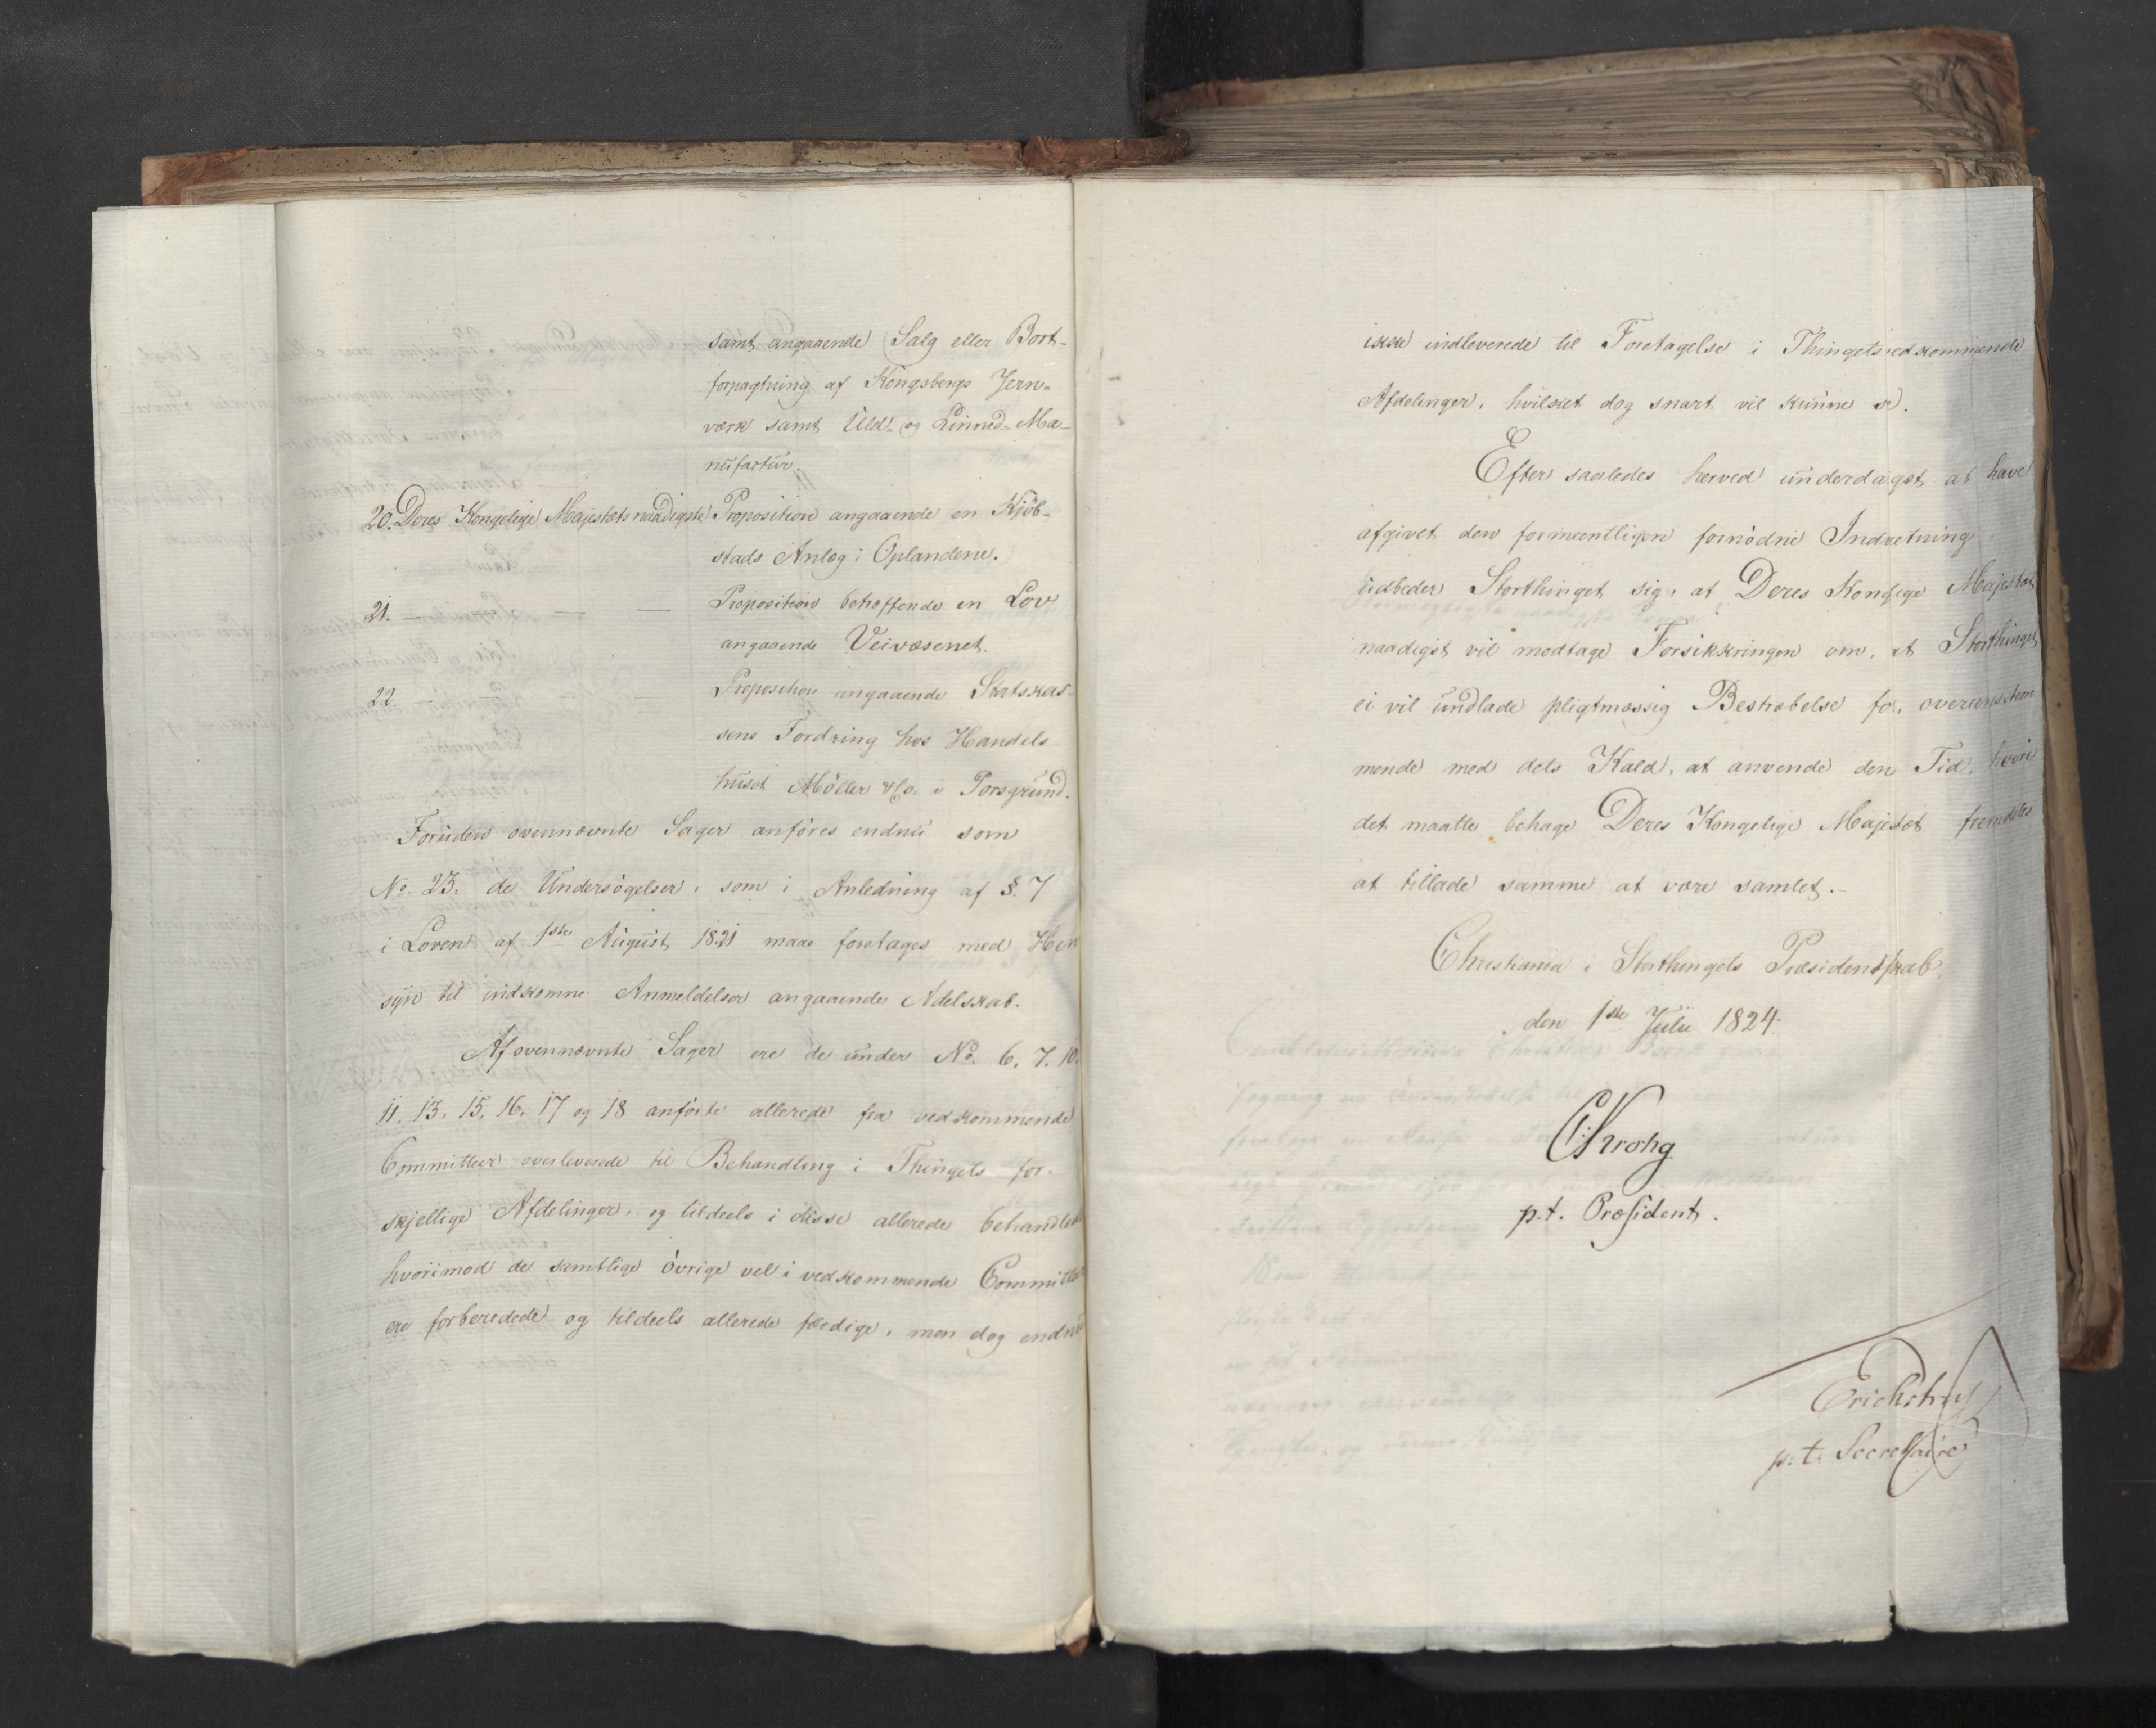 samt angaaende Salg eller Bort-
forpagtning af Kongsbergs Jern-
værk samt Uld- og Linned-Ma-
nufactur.
20. Deres Kongelige Majestæts naadigste Proposition angaaende en Kjøb-
stads Anlæg i Oplandene.
21. — — — Proposition betræffende en Lov
angaaende Veivæsenet.
22. — — Proposition angaaende Statskas-
sens Fordring hos Handels
huset Möller & Co. i Porsgrund.
Foruden ovennævnte Sager anføres endnu som
No. 23. de Undersøgelser, som i Anledning af §. 7
i Loven af 1ste August 1821 maae foretages med Hen
syn til indkomne Anmeldelser angaaende Adelskab.
Af ovennævnte Sager ere de under No. 6, 7. 10.
11, 13, 15, 16, 17 og 18 anførte allerede fra vedkommende
Committeer overleverede til Behandling i Thingets for-
skjellige Afdelinger, og tildeels i disse allerede behandlede
hvorimod de samtlige øvrige vel i vedkommende Committeer
ere forberedede og tildeels allerede færdige, men dog endnu
ikke indleverede til Foretagelse i Thingets vedkommende
Afdelinger, hvilket dog snart vil kunne skee.
Efter saaledes herved underdanigst at have
afgivet den formeentligen fornødne Indretning
udbeder Storthinget sig, at Deres Kongelige Majestæt
naadigst vil modtage Forsikkringen om, at Storthinget
ei vil undlade pligtmæssig Bestræbelse for, overeenstem
mende med dets Kald, at anvende den Tid, hvori
det maatte behage Deres Kongelige Majestæt fremdeles
at tillade samme at være samlet.-
Christiania i Storthingets Præsidentskab
den 1ste Julii 1824.
C: Krohg
p.t. Præsident.
p: t. Secretaire